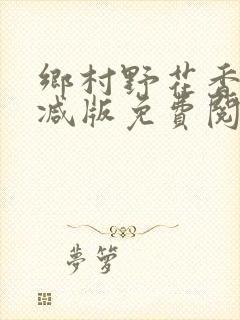 鄉村野花香
减版免費閱
夢箩